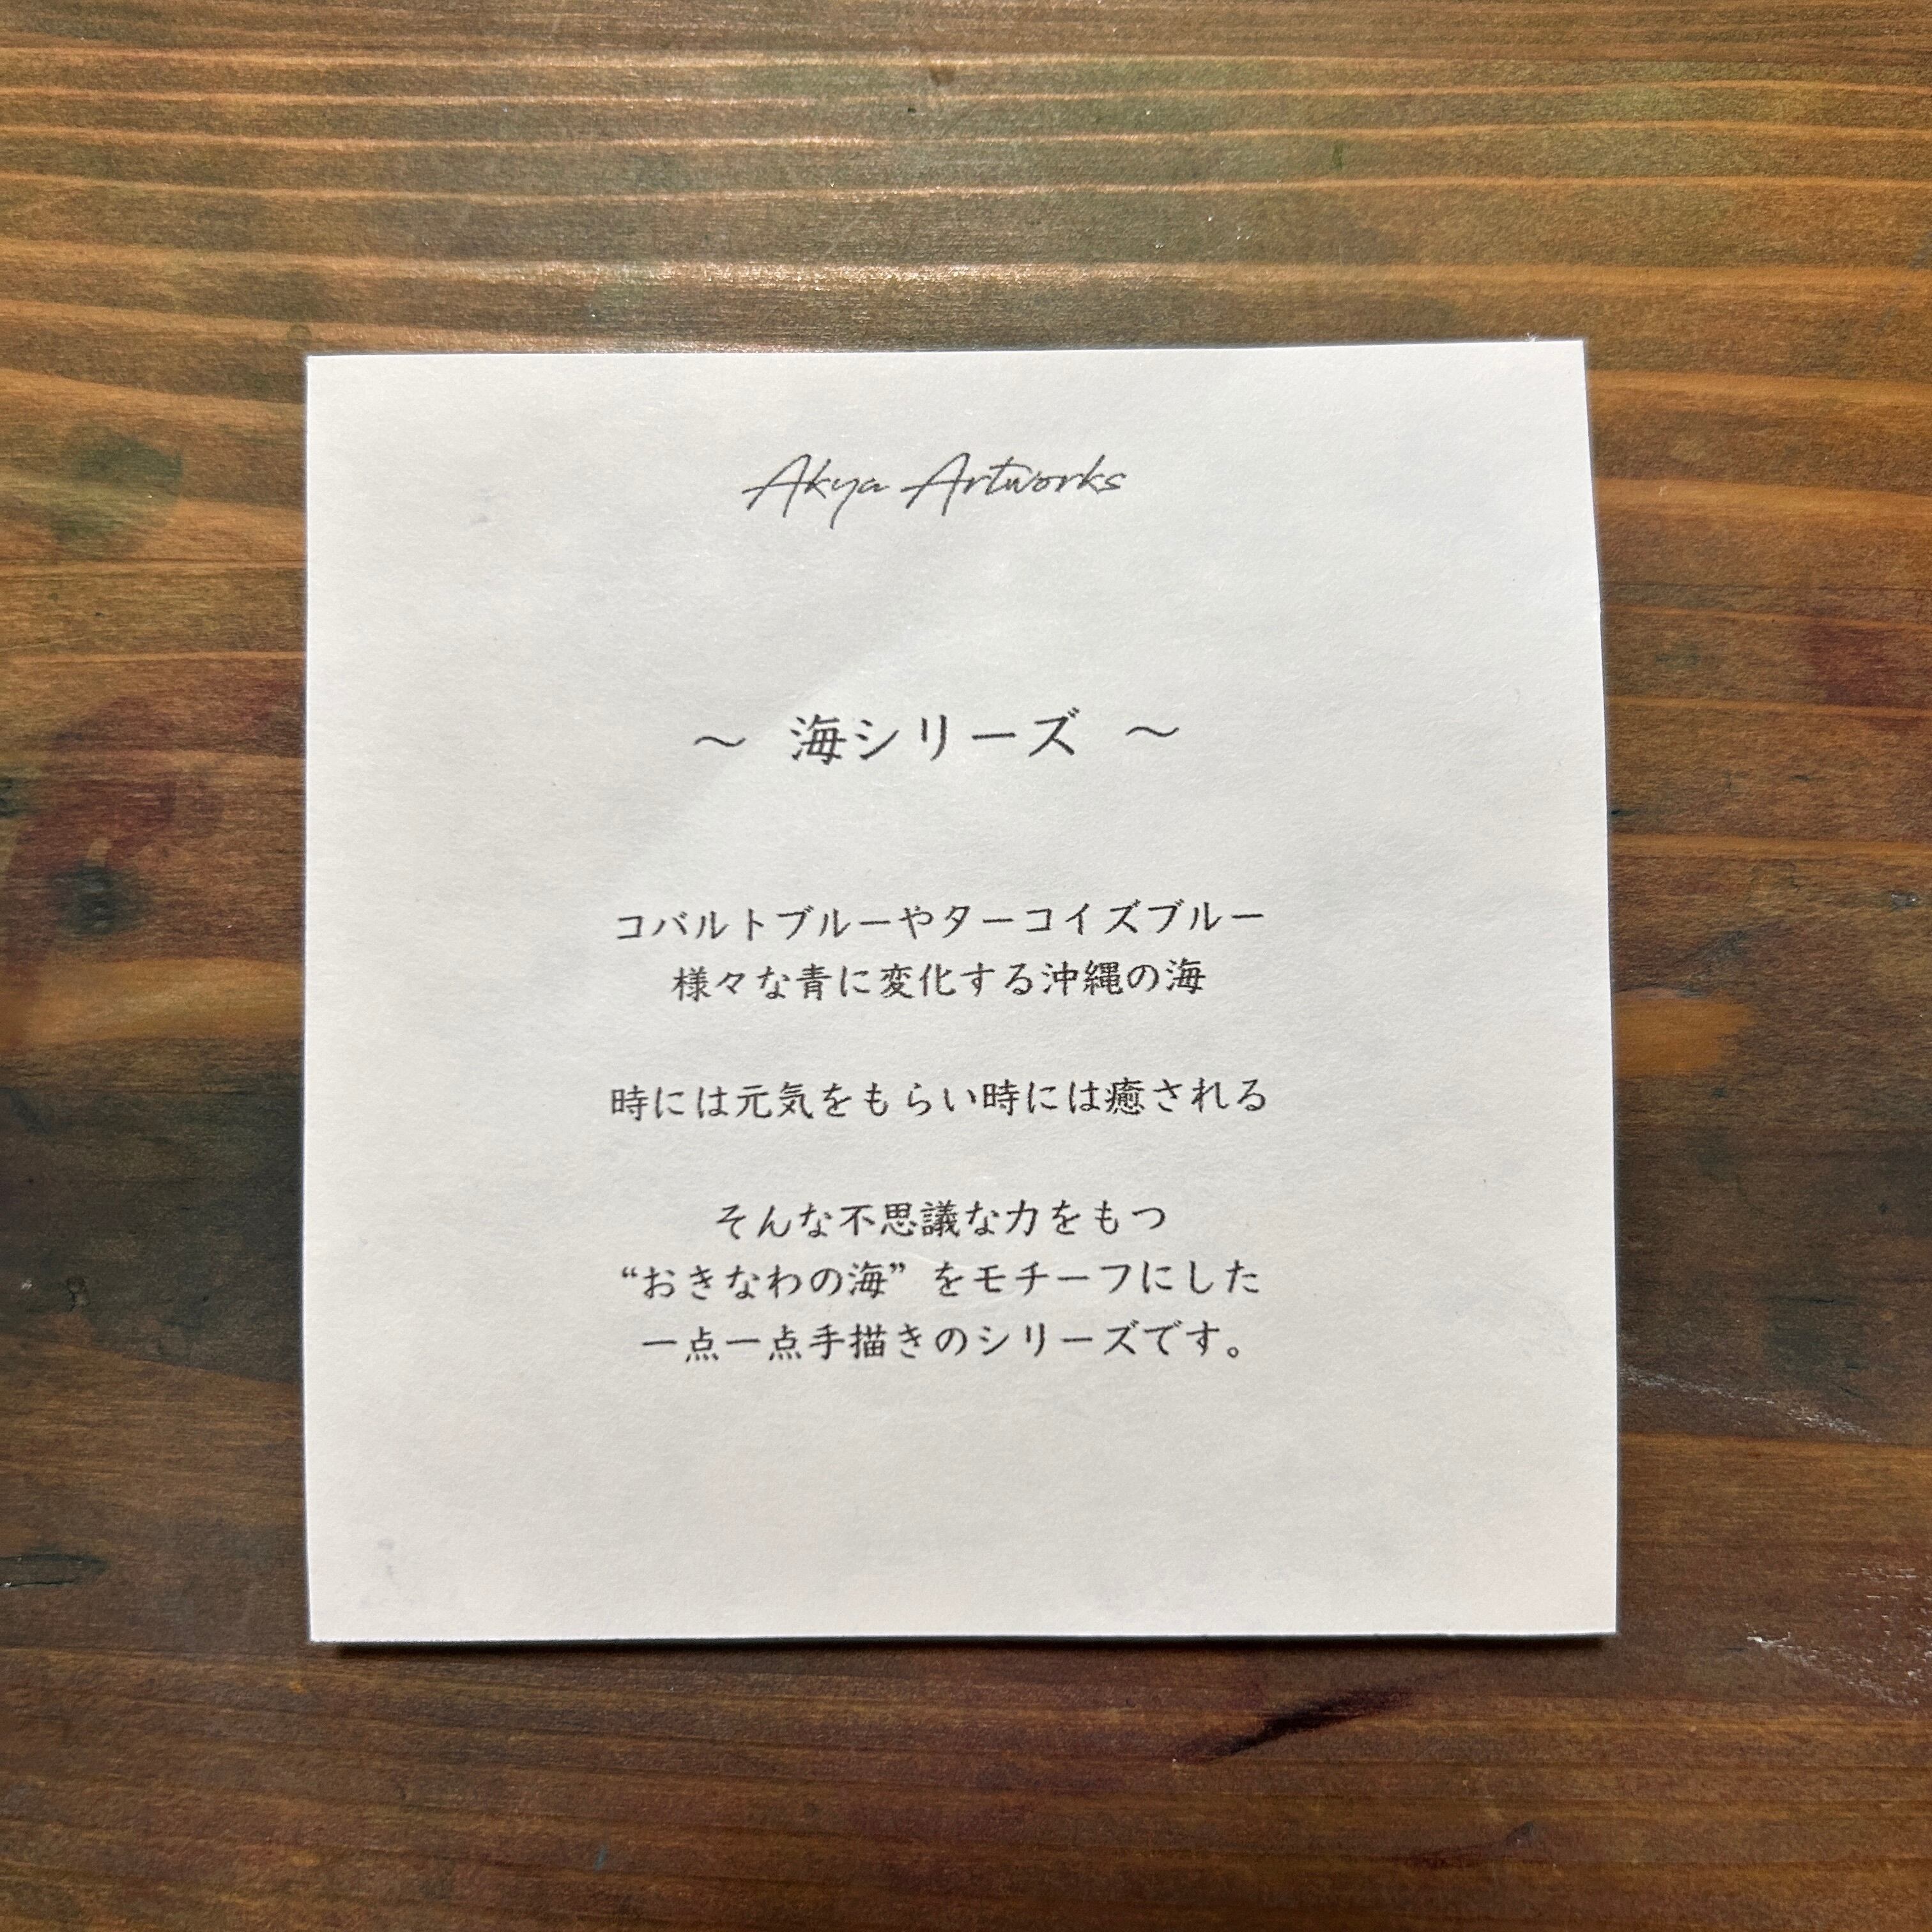 Akya Artworks
～ 海シリーズ ～
コバルトブルーやターコイズブルー
様々な青に変化する沖縄の海
時には元気をもらい時には癒される
そんな不思議な力をもつ
“おきなわの海”をモチーフにした
一点一点手描きのシリーズです。